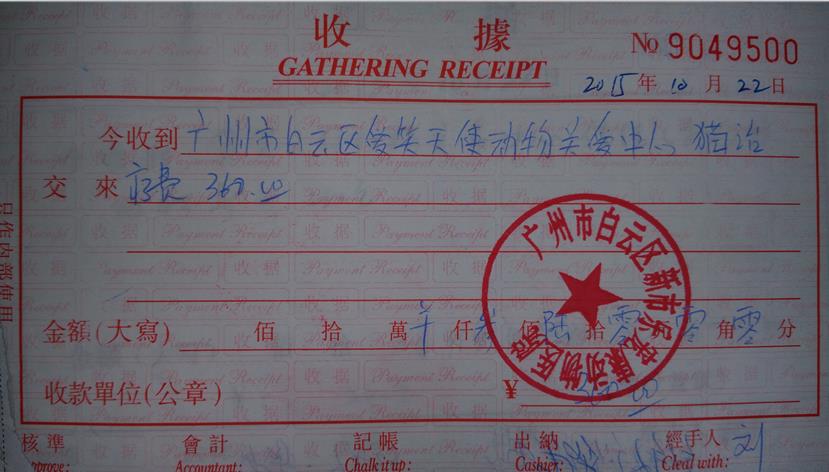 收據
№ 9049500
GATHERING RECEIPT
2015年10月22日
今收到广州市白云区爱笑天使动物关爱中心 猫治
交來疗费 360.00
只作内部使用
金額(大寫) 佰 拾 萬 仟 叁 佰 陆 拾 零 零 角 零 分
收款單位(公章) ¥ 360.00
广州市白云区新市乐安康动物医院
核準 會計 記帳 出納 經手人 刘
Approve: Accountant: Chalk it up: Cashier: Cleal with: